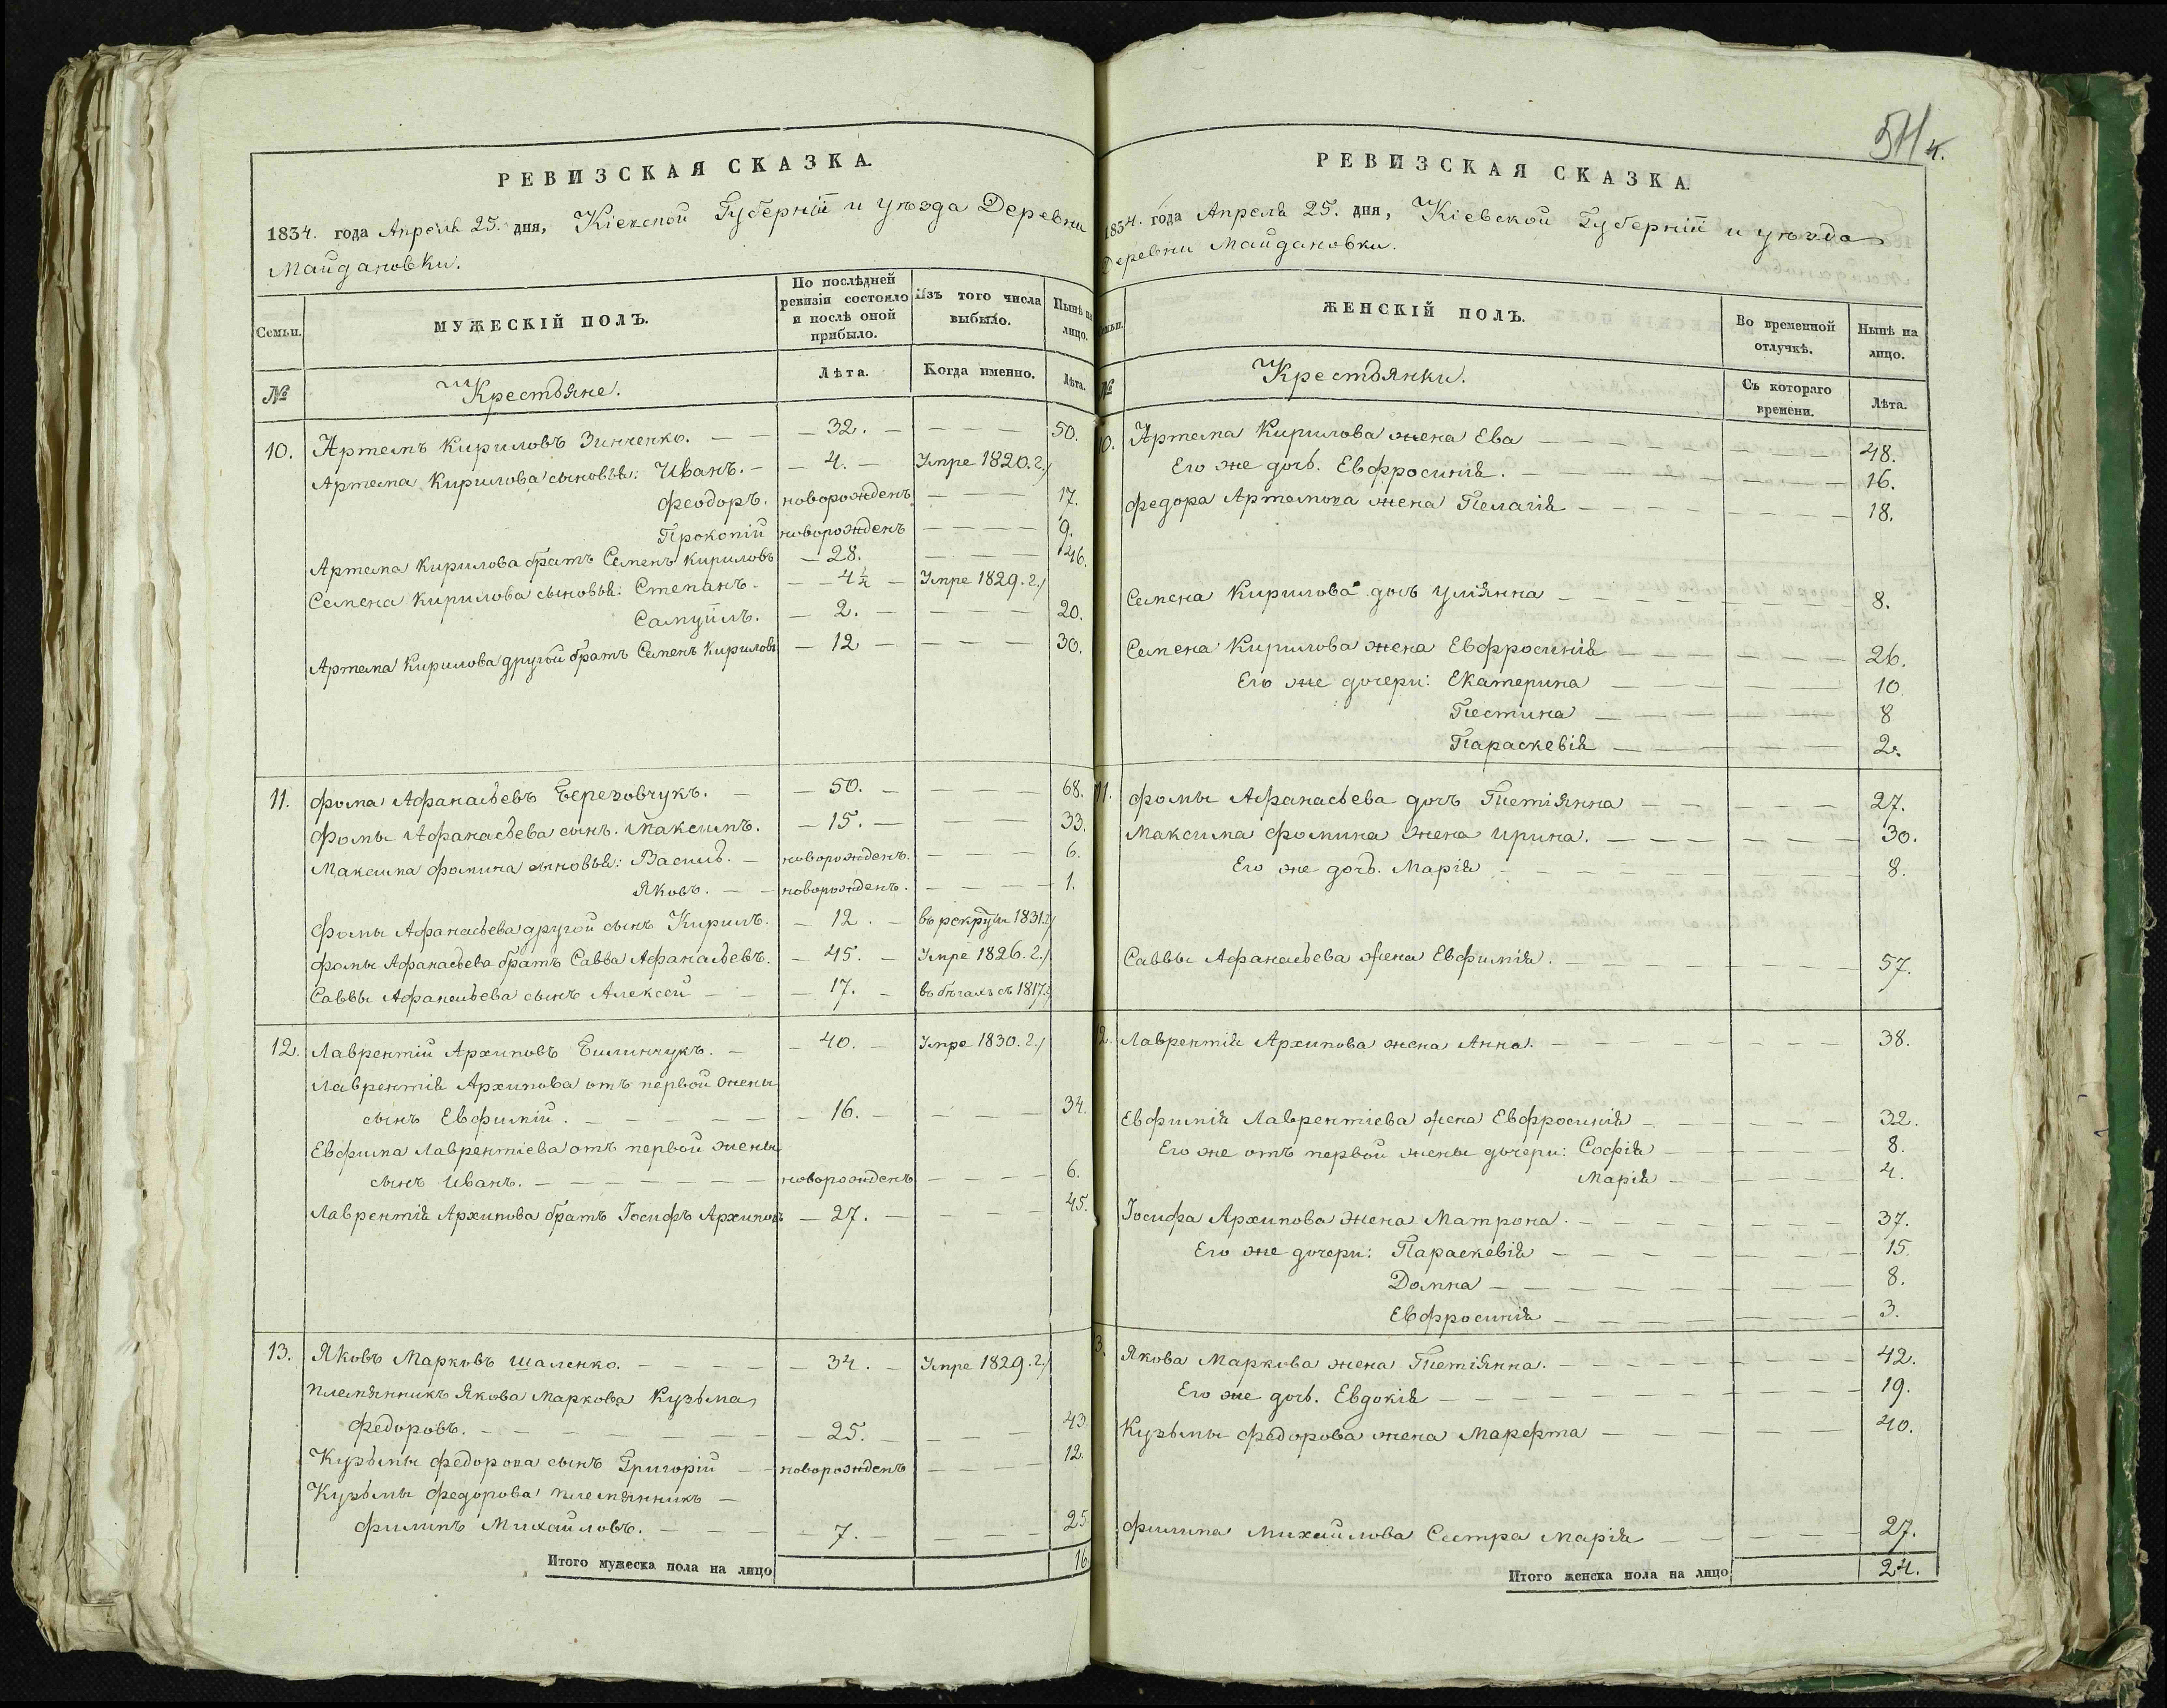 РЕВИЗСКАЯ СКАЗКА.
1834. года Апреля 25. дня, Кіевской Губерніи и уѣзда Деревни
Майдановки.
Семьи.
МУЖЕСКІЙ ПОЛЪ.
По послѣдней
ревизіи состояло
и послѣ оной
прибыло.
Изъ того числа
выбыло.
Нынѣ на
лицо.
№
Крестьяне.
Лѣта.
Когда именно.
Лѣта.
10. Артемъ Кириловъ Зинченко. — — — 32. — — — — 50.
Артема Кирилова сыновья: Иванъ. — — 4. — Умре 1820. г.
Феодоръ. новорожденъ — — — 17.
Прокопій новорожденъ — — — — 9.
Артема Кирилова братъ Семенъ Кириловъ — 28. — — — 46.
Семена Кирилова сыновья: Степанъ. — — — 4½ — Умре 1829. г.
Самуилъ. — 2. — — — — 20.
Артема Кирилова другой братъ Семенъ Кириловъ — 12 — — — — 30.
11. Фома Афанасьевъ Березовчукъ. — — 50. — — — — 68.
Фомы Афанасьева сынъ. Максимъ. — 15. — — — — 33.
Максима Фомина сыновья: Василь. — новорожденъ. — — 6.
Яковъ. — — новорожденъ. — — — — 1.
Фомы Афанасьева другой сынъ Кирилъ. — 12. — въ рекруты 1831
Фомы Афанасьева братъ Савва Афанасьевъ. — 45. — Умре 1826. г.
Саввы Афанасьева сынъ Алексей — — — 17. — въ бѣгахъ съ 1817
12. Лаврентій Архиповъ Билинчукъ. — — 40. — Умре 1830. г.
Лаврентія Архипова отъ первой жены
сынъ Евфимій. — — — — — — 16. — — — — 34.
Евфима Лаврентіева отъ первой жены
сынъ Иванъ. — — — — — — новорожденъ — — — — 6.
Лаврентія Архипова братъ Іосифъ Архиповъ — 27. — — — — 45.
13. Яковъ Марковъ Шаленко. — — — — — 34. — Умре 1829. г.
Племянникъ Якова Маркова Кузьма
Федоровъ. — — — — — — — — 25. — — — — 43.
Кузьмы Федорова сынъ Григорій — — новорожденъ — — — — 12.
Кузьмы Федорова племянникъ —
Филипъ Михайловъ. — — — — 7. — — — — 25.
Итого мужеска пола на лицо 16
511
РЕВИЗСКАЯ СКАЗКА.
1834. года Апреля 25. дня, Кіевской Губерніи и уѣзда
Деревни Майдановки.
ЖЕНСКІЙ ПОЛЪ.
Во временной
отлучкѣ.
Нынѣ на
лицо.
№
Крестьянки.
Съ котораго
времени.
Лѣта.
10. Артема Кирилова жена Ева — — — — — — — 48.
Его же дочь. Евфросинія. — — — — — — — 16.
Федора Артемова жена Пелагія — — — — — — — 18.
Семена Кирилова дочь Уліянна — — — — — — — 8.
Семена Кирилова жена Евфросинія — — — — — — 26.
Его же дочери: Екатерина — — — — — — 10.
Тестина — — — — — — 8
Параскевія — — — — — — 2.
11. Фомы Афанасьева дочь Тетіянна — — — — — — 27.
Максима Фомина жена Ирина. — — — — — — 30.
Его же дочь. Марія — — — — — — 8.
Саввы Афанасьева жена Евфимія. — — — — — — 57.
12. Лаврентія Архипова жена Анна. — — — — — — 38.
Евфимія Лаврентіева жена Евфросинія — — — — — 32.
Его же отъ первой жены дочери: Софія — — — — 8.
Марія — — — — 4.
Іосифа Архипова жена Матрона. — — — — — — 37.
Его же дочери: Параскевія — — — — — — 15.
Домна — — — — — — 8.
Евфросинія — — — — — — 3.
13. Якова Маркова жена Тетіянна. — — — — — — 42.
Его же дочь. Евдокія — — — — — — 19.
Кузьмы Федорова жена Марфта — — — — — — 40.
Филипа Михайлова Сестра Марія — — — — — 27.
Итого женска пола на лицо 24.